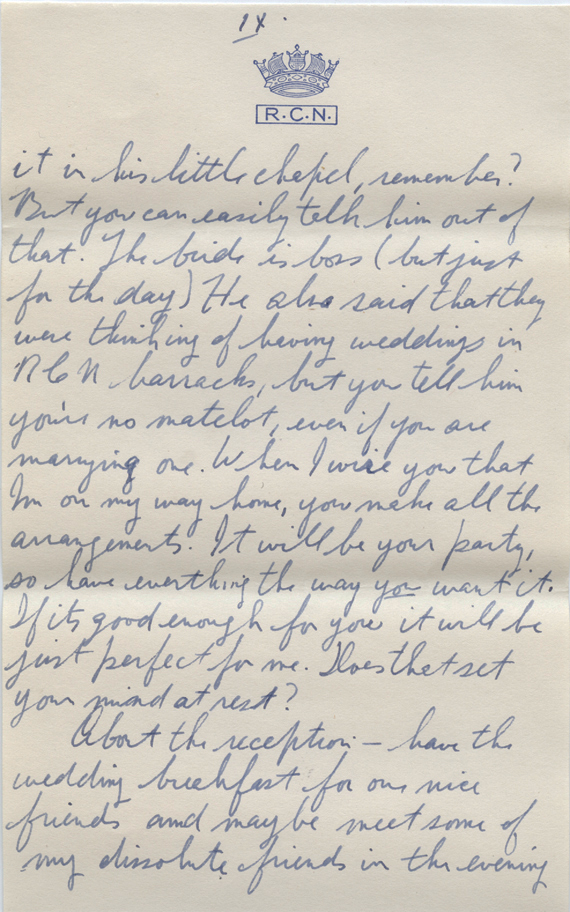 IX.
R.C.N.
it in his little chapel, remember?
But you can easily talk him out of
that. The bride is boss (but just
for the day) He also said that they
were thinking of having weddings in
RCN barracks, but you tell him
you're no matelot, even if you are
marrying one. When I wire you that
Im on my way home, you make all the
arrangements. It will be your party,
so have everthing the way you want it.
If its good enough for you it will be
just perfect for me. Does that set
your mind at rest?
About the reception — have the
wedding breakfast for our nice
friends and maybe meet some of
my dissolute friends in the evening